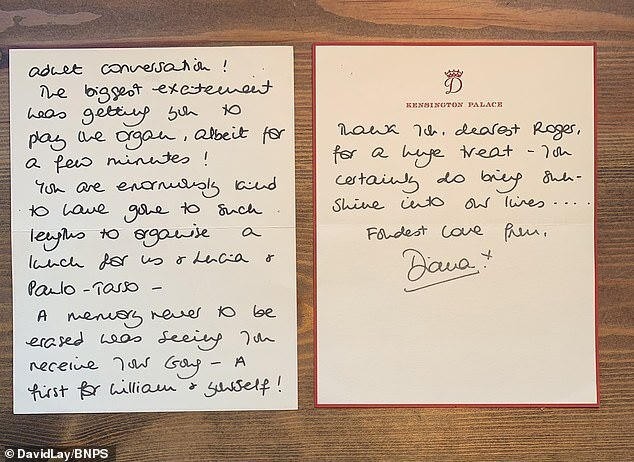 adult conversation!
The biggest excitement
was getting you to
play the organ, albeit for
a few minutes!
You are enormously kind
to have gone to such
lengths to organise a
lunch for us & Lucia &
Paulo-Tarso -
A memory never to be
erased was seeing you
receive your Gong - A
first for William & yourself!
D
KENSINGTON PALACE
Thank you, dearest Roger,
for a huge treat - you
certainly do bring sun-
shine into our lives ....
Fondest love from,
Diana. x
© DavidLay/BNPS